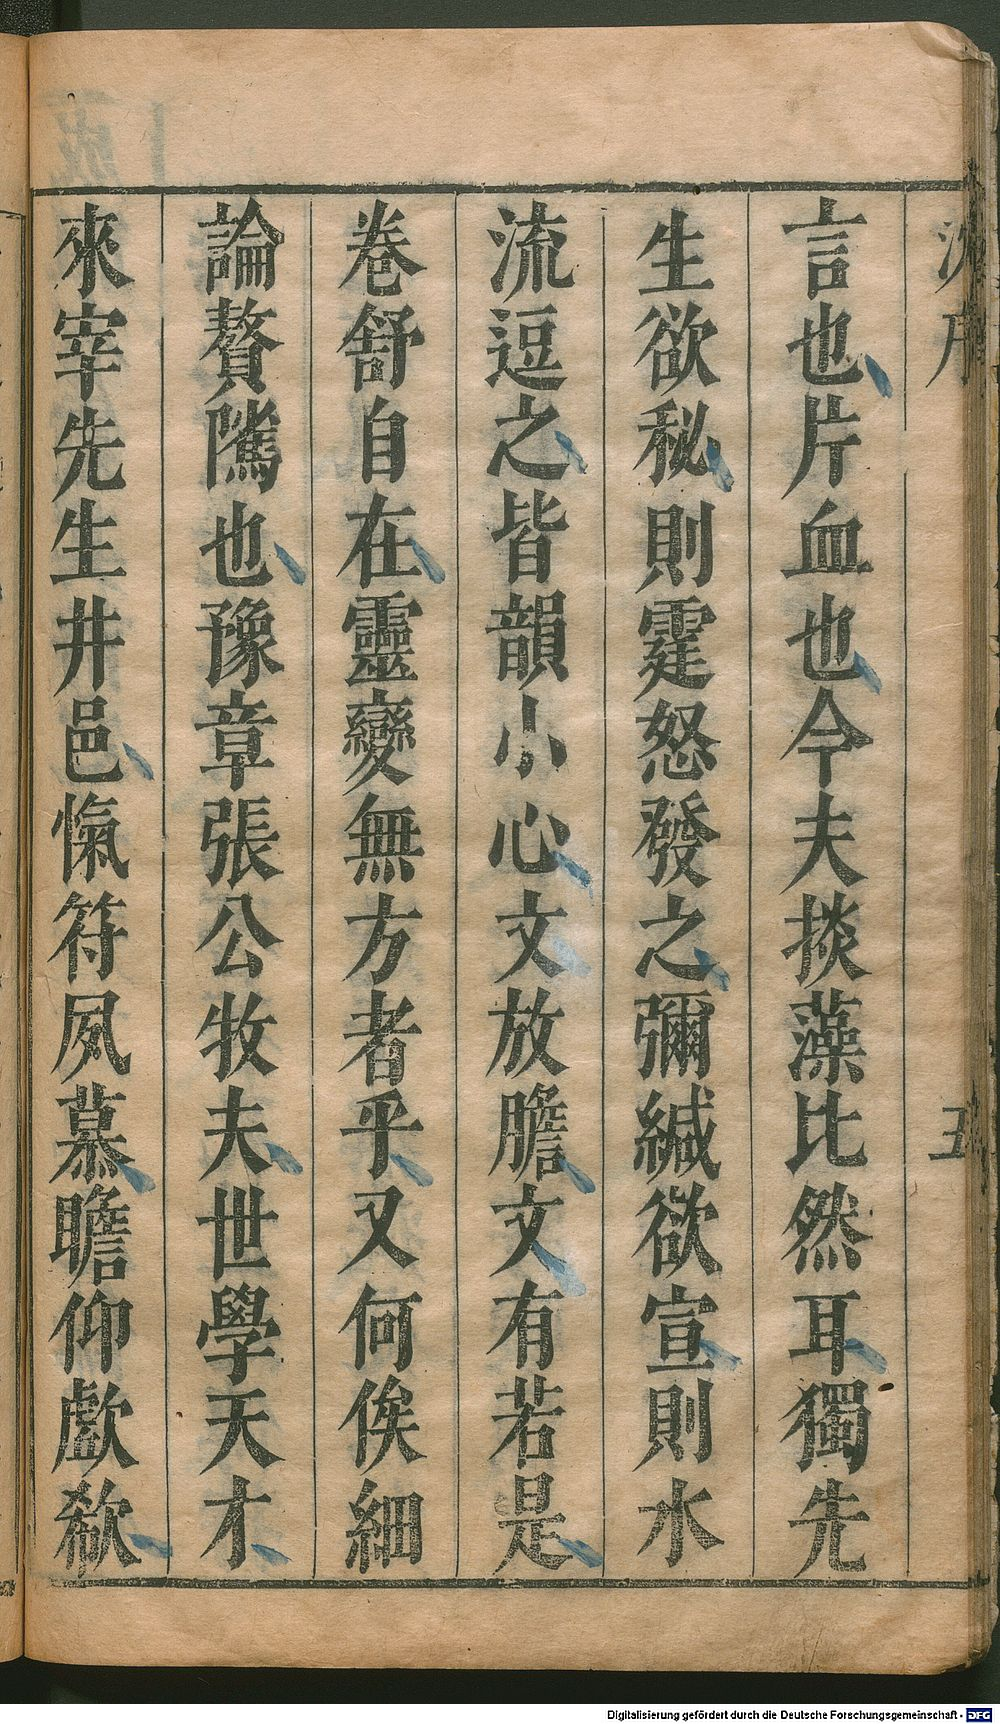 言也片血也今夫掞藻比然耳獨先
生欲秘則霆怒發之彌緘欲宣則水
流逗之皆韻小心文放膽文有若是
卷舒自在靈變無方者乎又何俟細
論贅隲也豫章張公牧夫世學天才
來宰先生井邑愾符夙慕瞻仰歔欷
五
Digitalisierung gefördert durch die Deutsche Forschungsgemeinschaft - DFG